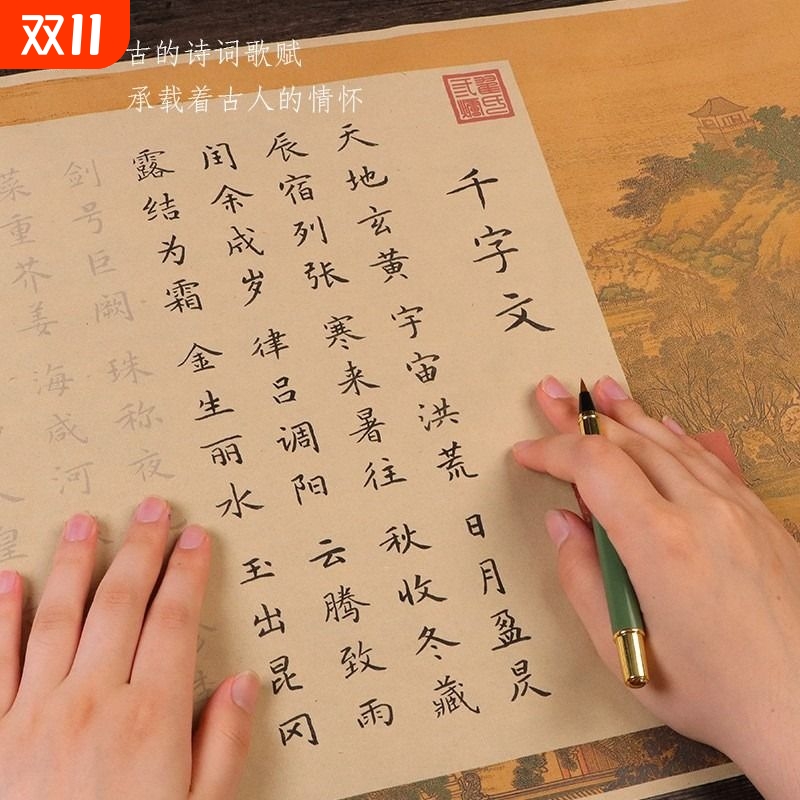 双11
古的诗词歌赋
承载着古人的情怀
千字文
天地玄黄 宇宙洪荒 日月盈昃
辰宿列张 寒来暑往 秋收冬藏
闰余成岁 律吕调阳 云腾致雨
露结为霜 金生丽水 玉出昆冈
剑号巨阙 珠称夜
菜重芥姜 海咸河
人皇